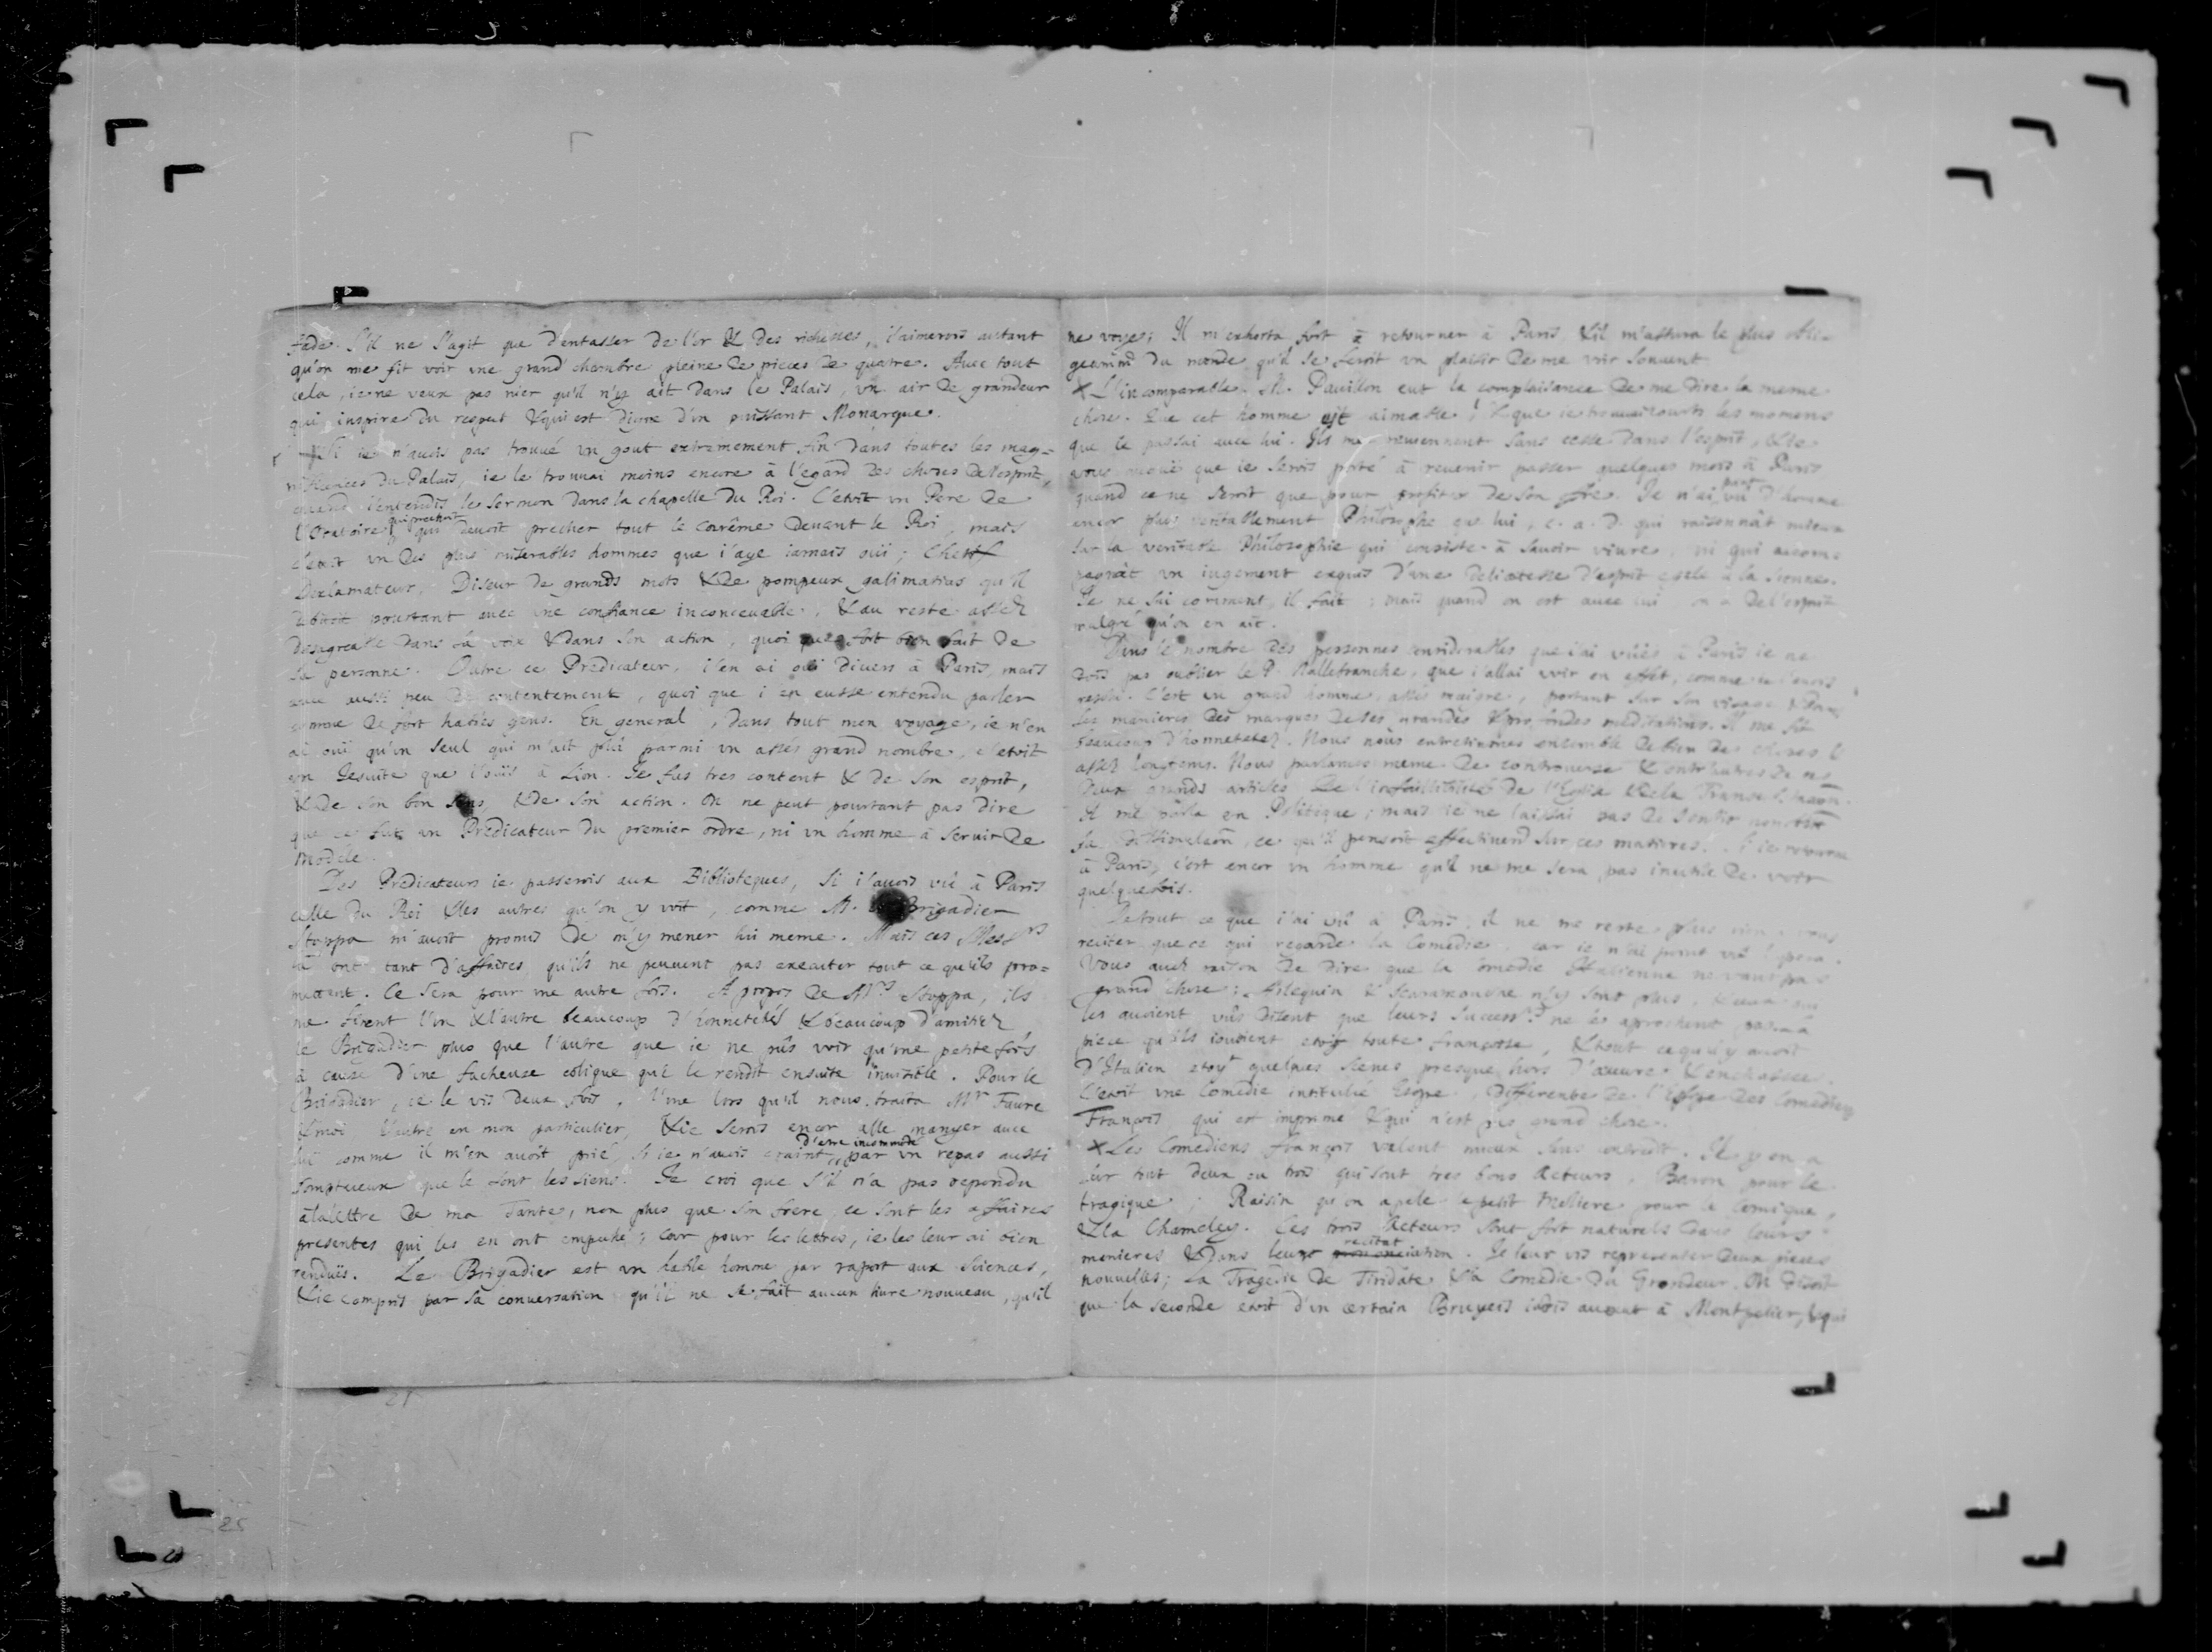 fade. S'il ne s'agit que d'entasser de l'or & des richesses, i'aimerois autant
qu'on me fit voir une grand chambre pleine de pieces de quatre. Avec tout
cela, ie ne veux pas nier qu'il n'y ait dans le Palais, un air de grandeur
qui inspire du respect & qui est digne d'un puissant Monarque.
Si ie n'avois pas trouvé un gout extremement fin dans toutes les mag=
nificences du Palais, ie le trouvai moins encore à l'egard des choses de l'esprit,
quand i'entendis le sermon dans la chapelle du Roi. C'etoit un Pere de
l'Oratoire qui prechoit
qui devoit precher tout le carême devant le Roi, mais
c'etoit un des plus miserables hommes que i'aye iamais oüi; Chetif
Declamateur, Diseur de grands mots & de pompeux galimatias qu'il
debitoit pourtant avec une confiance inconcevable, & au reste assez
desagreable dans sa voix & dans son action, quoi que fort bien fait de
sa personne. Outre ce Predicateur, i'en ai oüi divers à Paris, mais
avec aussi peu de contentement, quoi que i'en eusse entendu parler
comme de fort habiles gens. En general, dans tout mon voyage, ie n'en
ai oüi qu'un seul qui m'ait plû parmi un assés grand nombre, c'etoit
un Jesuite que i'oüis à Lion. Je fus tres content & de son esprit,
& de son bon sens, & de son action. On ne peut pourtant pas dire
que ce fut un Predicateur du premier ordre, ni un homme à servir de
modele.
Des Predicateurs ie passerois aux Biblioteques, si i'avois vû à Paris
celle du Roi & les autres qu'on y voit, comme M. le Brigadier
Stoppa m'avoit promis de m'y mener lui meme. Mais ces Messrs
là ont tant d'affaires qu'ils ne peuvent pas executer tout ce qu'ils pro=
mettent. Ce sera pour une autre fois. A propos de Mrs Stoppa, ils
me firent l'un & l'autre beaucoup d'honnetetés & beaucoup d'amitiez,
le Brigadier plus que l'autre que ie ne pûs voir qu'une petite fois
à cause d'une facheuse colique qui le rendit ensuite invisible. Pour le
Brigadier, ie le vis deux fois, l'une lors qu'il nous traita Mr Faure
& moi, l'autre en mon particulier, & ie serois encor allé manger avec
lui comme il m'en avoit prié, si ie n'avois craint d'etre incommodé par un repas aussi
somptueux que le sont les siens. Je croi que s'il n'a pas repondu
à la lettre de ma Tante, non plus que son frere, ce sont les affaires
presentes qui les en ont empeché; car pour les lettres, ie les leur ai bien
rendües. Le Brigadier est un habile homme par raport aux sciences,
& ie compris par sa conversation qu'il ne se fait aucun livre nouveau, qu'il
ne voye; Il m'exhorta fort à retourner à Paris & il m'assura le plus obli=
geamment du monde qu'il se feroit un plaisir de me voir souvent.
L'incomparable M. Pavillon eut la complaisance de me dire la meme
chose. Que cet homme est aimable! & que ie trouvai courts les momens
que ie passai avec lui. Ils me reviennent sans cesse dans l'esprit, & ie
vous avoüe que ie serois porté à revenir passer quelques mois à Paris
quand ce ne seroit que pour profiter de son Je n'ai point vû d'homme
encor plus veritablement Philosophe que lui, c. a. d. qui raisonnât mieux
sur la veritable Philosophie qui consiste à savoir vivre, ni qui accom=
pagnât un iugement exquis d'une delicatesse d'esprit egale à la sienne.
Je ne sai comment il fait; mais quand on est avec lui on a de l'esprit
malgré qu'on en ait.
Dans le nombre des personnes considerables que i'ai vûës à Paris ie ne
dois pas oublier le P. Mallebranche, que i'allai voir en effet, comme ie l'avois
resolu. C'est un grand homme, assés maigre, portant sur son visage & dans
ses manieres des marques de ses grandes & profondes meditations. Il me fit
beaucoup d'honnetetez. Nous nous entretinmes ensemble de bien des choses &
assez longtems. Nous parlames meme de controverse & entr'autres de nos
deux grands articles de l'infaillibilité de l'Eglise & de la Transsubstaon.
Il me parla en Politique, mais ie ne laissai pas de sentir nonobstt
sa dissimulaon, ce qu'il pensoit effectivemt sur ces matieres. Si ie retourne
à Paris, c'est encor un homme qu'il ne me sera pas inutile de voir
quelquefois.
De tout ce que i'ai vû à Paris, il ne me reste plus rien à vous
reciter que ce qui regarde la Comedie, car ie n'ai point vû l'Opera.
Vous avez raison de dire que la Comedie Italienne ne vaut pas
grand'chose; Arlequin & Scaramouche n'y sont plus, & ceux qui
les avoient vûs disent que leurs successrs ne les aprochent pas. La
piece qu'ils iouoient etoit toute françoise, & tout ce qu'il y avoit
d'Italien etoyt quelques scenes presque hors d'œuvre & enchassées.
C'etoit une Comedie intitulée Esope, differente de l'Esope des Comediens
François qui est imprimé & qui n'est pas grand chose.
Les Comediens françois valent mieux sans contredit. Il y en a
sur tout deux ou trois qui sont tres bons Acteurs, Baron pour le
tragique, Raisin qu'on apele le petit Moliere pour le Comique,
& la Chameley. Ces trois Acteurs sont fort naturels dans leurs
manieres & dans leur recitat prononciation. Je leur vis representer deux pieces
nouvelles; La Tragedie de Tiridate & la Comedie du Grondeur. On disoit
que la seconde etoit d'un certain Brueys iadis avocat à Montpelier, & qui